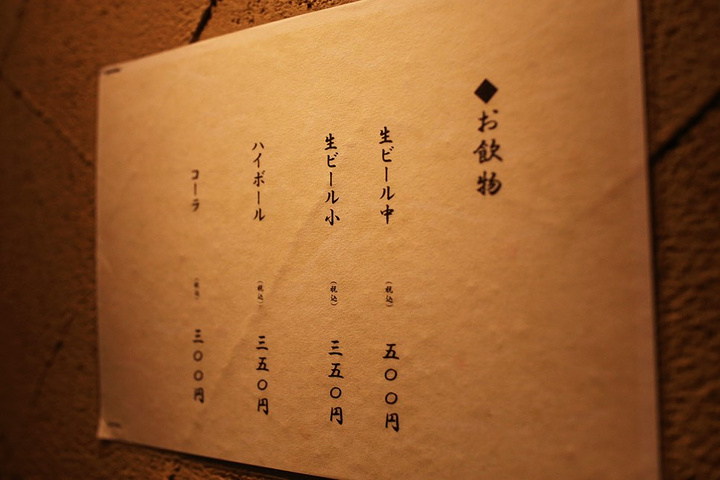 ◆お飲物
生ビール中 (税込) 五〇〇円
生ビール小 (税込) 三五〇円
ハイボール (税込) 三五〇円
コーラ (税込) 三〇〇円